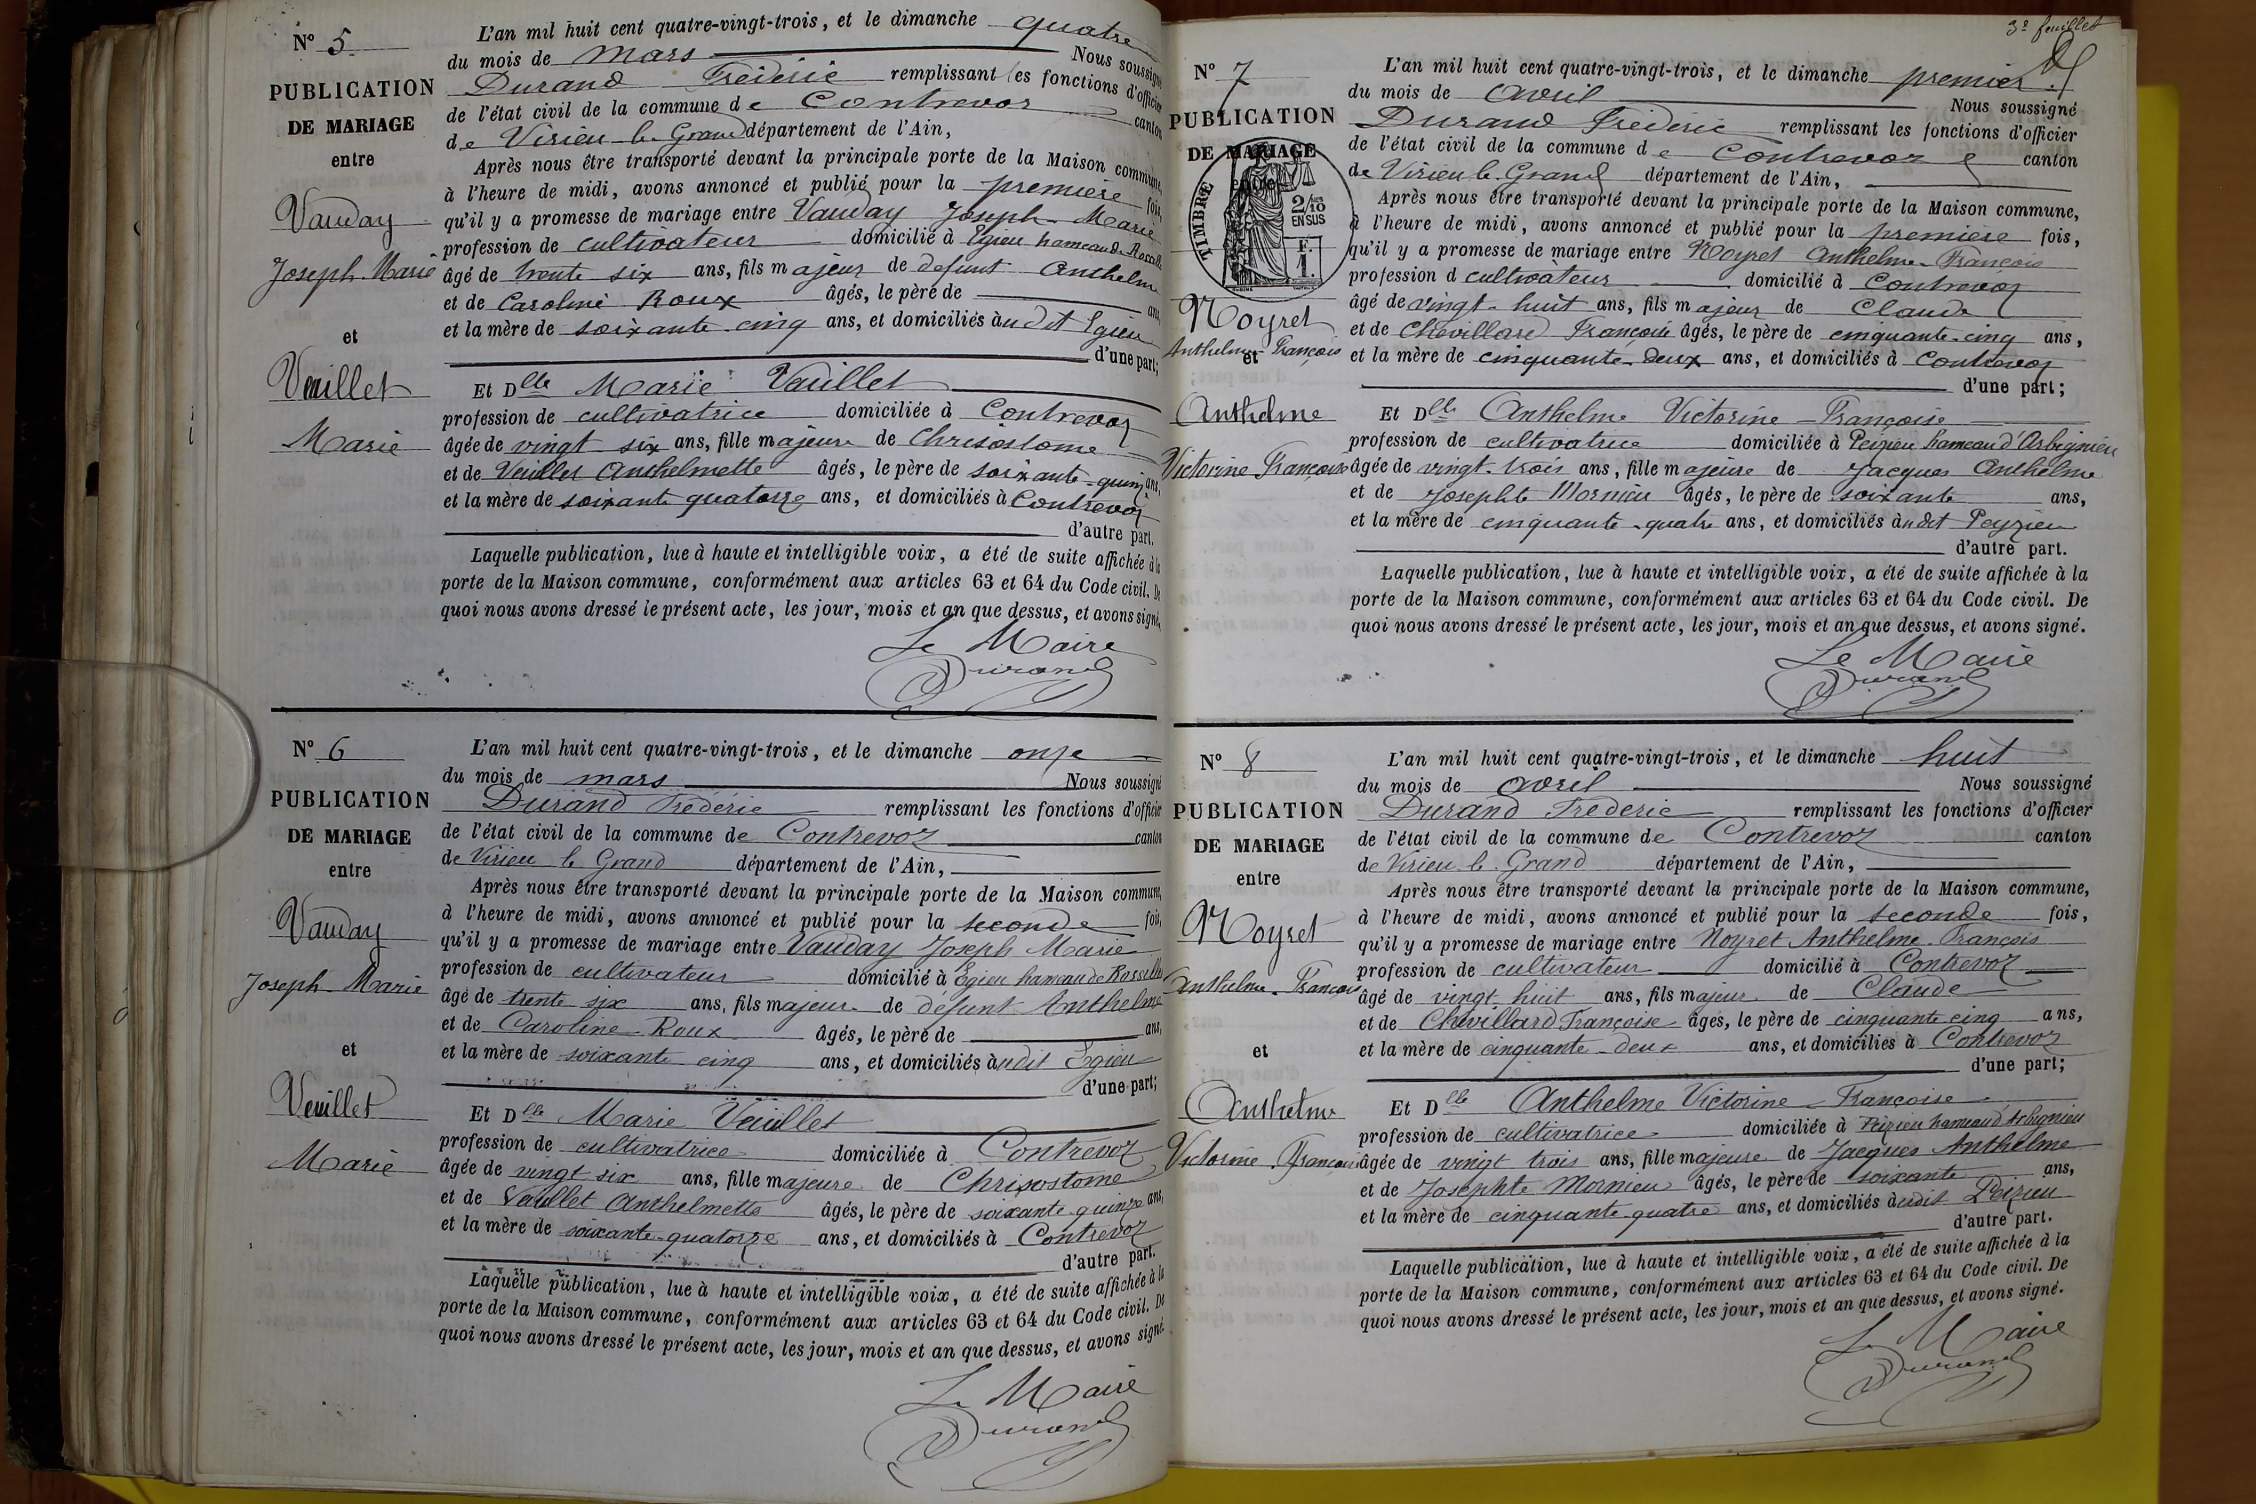 N° 5
PUBLICATION
DE MARIAGE
entre
Vauday
Joseph-Marie
et
Veuillet
Marie
L'an mil huit cent quatre-vingt-trois, et le dimanche quatre
du mois de mars Nous soussigné
Durand Frédéric remplissant les fonctions d'officier
de l'état civil de la commune de Contrevoz canton
de Virieu-le-Grand département de l'Ain,
Après nous être transporté devant la principale porte de la Maison commune,
à l'heure de midi, avons annoncé et publié pour la première fois,
qu'il y a promesse de mariage entre Vauday Joseph-Marie
profession de cultivateur domicilié à Egieu hameau de Rossillon
âgé de trente six ans, fils majeur de défunt Anthelme
et de Caroline Roux âgés, le père de ans,
et la mère de soixante-cinq ans, et domiciliés audit Egieu
d'une part;
Et Dlle Marie Veuillet
profession de cultivatrice domiciliée à Contrevoz
âgée de vingt six ans, fille majeure de Chrisostome
et de Veuillet Anthelmette âgés, le père de soixante-quinze ans,
et la mère de soixante quatorze ans, et domiciliés à Contrevoz
d'autre part.
Laquelle publication, lue à haute et intelligible voix, a été de suite affichée à la
porte de la Maison commune, conformément aux articles 63 et 64 du Code civil. De
quoi nous avons dressé le présent acte, les jour, mois et an que dessus, et avons signé.
Le Maire
Durand
N° 6
PUBLICATION
DE MARIAGE
entre
Vauday
Joseph-Marie
et
Veuillet
Marie
L'an mil huit cent quatre-vingt-trois, et le dimanche onze
du mois de mars Nous soussigné
Durand Frédéric remplissant les fonctions d'officier
de l'état civil de la commune de Contrevoz canton
de Virieu le Grand département de l'Ain,
Après nous être transporté devant la principale porte de la Maison commune,
à l'heure de midi, avons annoncé et publié pour la seconde fois,
qu'il y a promesse de mariage entre Vauday Joseph Marie
profession de cultivateur domicilié à Egieu hameau de Rossillon
âgé de trente six ans, fils majeur de défunt Anthelme
et de Caroline Roux âgés, le père de ans,
et la mère de soixante cinq ans, et domiciliés audit Egieu
d'une part;
Et Dlle Marie Veuillet
profession de cultivatrice domiciliée à Contrevoz
âgée de vingt six ans, fille majeure de Chrisostome
et de Veuillet Anthelmette âgés, le père de soixante quinze ans,
et la mère de soixante-quatorze ans, et domiciliés à Contrevoz
d'autre part.
Laquelle publication, lue à haute et intelligible voix, a été de suite affichée à la
porte de la Maison commune, conformément aux articles 63 et 64 du Code civil. De
quoi nous avons dressé le présent acte, les jour, mois et an que dessus, et avons signé
Le Maire
Durand
3e feuillet
N° 7
PUBLICATION
DE MARIAGE
entre
TIMBRE
2/10
EN SUS
F.
1.
Noyret
Anthelme-François
et
Anthelme
Victorine Françoise
L'an mil huit cent quatre-vingt-trois, et le dimanche premier
du mois de avril Nous soussigné
Durand Frédéric remplissant les fonctions d'officier
de l'état civil de la commune de Contrevoz canton
de Virieu-le-Grand département de l'Ain,
Après nous être transporté devant la principale porte de la Maison commune,
à l'heure de midi, avons annoncé et publié pour la première fois,
qu'il y a promesse de mariage entre Noyret Anthelme-François
profession d cultivateur domicilié à Contrevoz
âgé de vingt-huit ans, fils majeur de Claude
et de Chevillard Françoise âgés, le père de cinquante-cinq ans,
et la mère de cinquante-deux ans, et domiciliés à Contrevoz
d'une part;
Et Dlle Anthelme Victorine-Françoise
profession de cultivatrice domiciliée à Peizieu hameau d'Arbignieu
âgée de vingt-trois ans, fille majeure de Jacques Anthelme
et de Josephte Mornieu âgés, le père de soixante ans,
et la mère de cinquante-quatre ans, et domiciliés audit Peyzieu
d'autre part.
Laquelle publication, lue à haute et intelligible voix, a été de suite affichée à la
porte de la Maison commune, conformément aux articles 63 et 64 du Code civil. De
quoi nous avons dressé le présent acte, les jour, mois et an que dessus, et avons signé.
Le Maire
Durand
N° 8
PUBLICATION
DE MARIAGE
entre
Noyret
Anthelme-François
et
Anthelme
Victorine-Françoise
L'an mil huit cent quatre-vingt-trois, et le dimanche huit
du mois de avril Nous soussigné
Durand Frédéric remplissant les fonctions d'officier
de l'état civil de la commune de Contrevoz canton
de Virieu-le-Grand département de l'Ain,
Après nous être transporté devant la principale porte de la Maison commune,
à l'heure de midi, avons annoncé et publié pour la seconde fois,
qu'il y a promesse de mariage entre Noyret Anthelme-François
profession de cultivateur domicilié à Contrevoz
âgé de vingt-huit ans, fils majeur de Claude
et de Chevillard Françoise âgés, le père de cinquante cinq ans,
et la mère de cinquante-deux ans, et domiciliés à Contrevoz
d'une part;
Et Dlle Anthelme Victorine-Françoise
profession de cultivatrice domiciliée à Peizieu hameau d'Arbignieu
âgée de vingt trois ans, fille majeure de Jacques Anthelme
et de Josephte Mornieu âgés, le père de soixante ans,
et la mère de cinquante quatre ans, et domiciliés audit Peizieu
d'autre part.
Laquelle publication, lue à haute et intelligible voix, a été de suite affichée à la
porte de la Maison commune, conformément aux articles 63 et 64 du Code civil. De
quoi nous avons dressé le présent acte, les jour, mois et an que dessus, et avons signé.
Le Maire
Durand